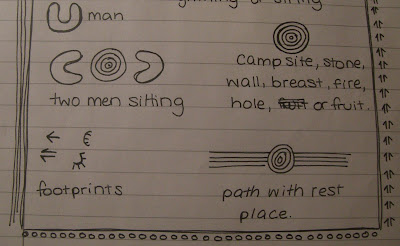 man
two men sitting
camp site, stone,
wall, breast, fire,
hole, or fruit.
footprints
path with rest
place.